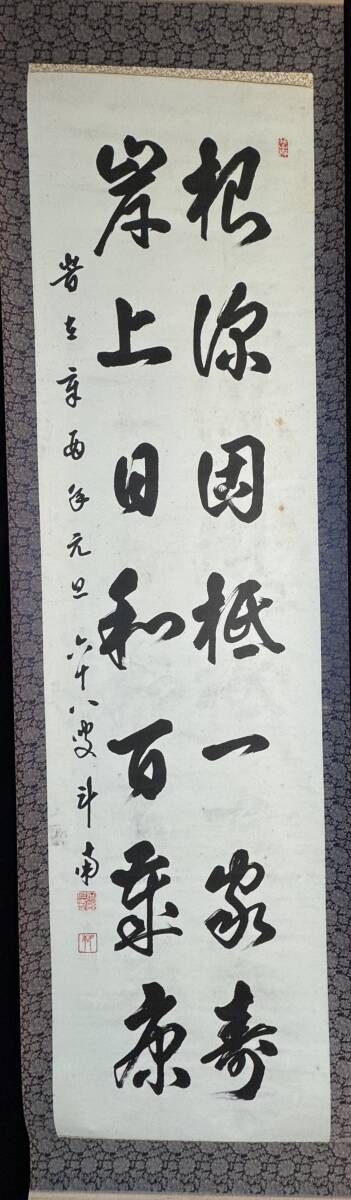 根深固柢一家寿
岸上日和百歳康
旹在辛酉年元旦 六十八叟斗南